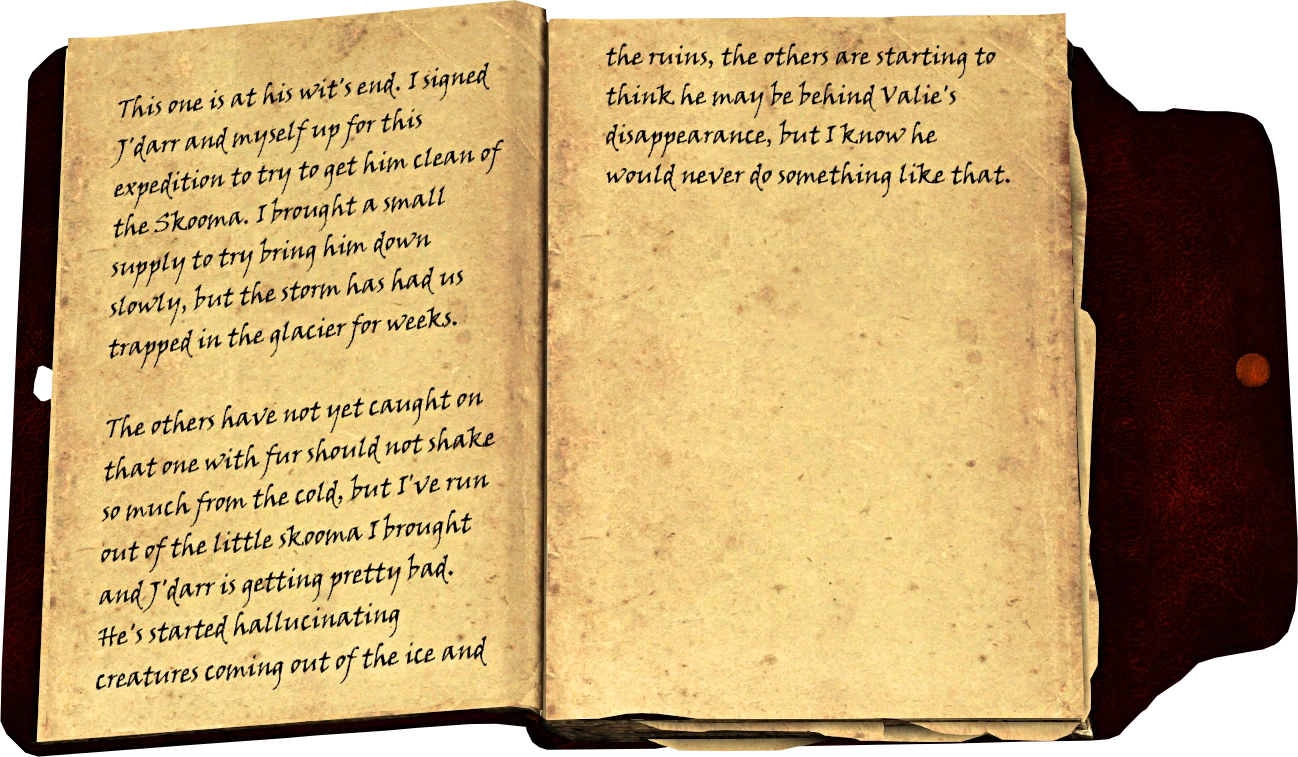 This one is at his wit's end. I signed
J'darr and myself up for this
expedition to try to get him clean of
the Skooma. I brought a small
supply to try bring him down
slowly, but the storm has had us
trapped in the glacier for weeks.
The others have not yet caught on
that one with fur should not shake
so much from the cold, but I've run
out of the little skooma I brought
and J'darr is getting pretty bad.
He's started hallucinating
creatures coming out of the ice and
the ruins, the others are starting to
think he may be behind Valie's
disappearance, but I know he
would never do something like that.